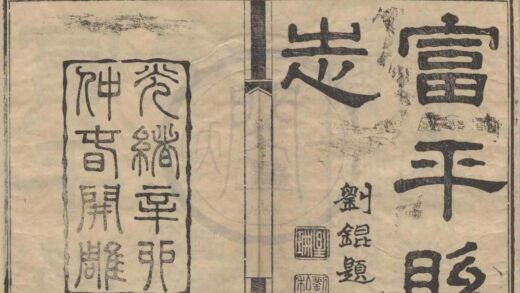 富平縣
志
劉錕題
光緒辛卯
仲春開雕